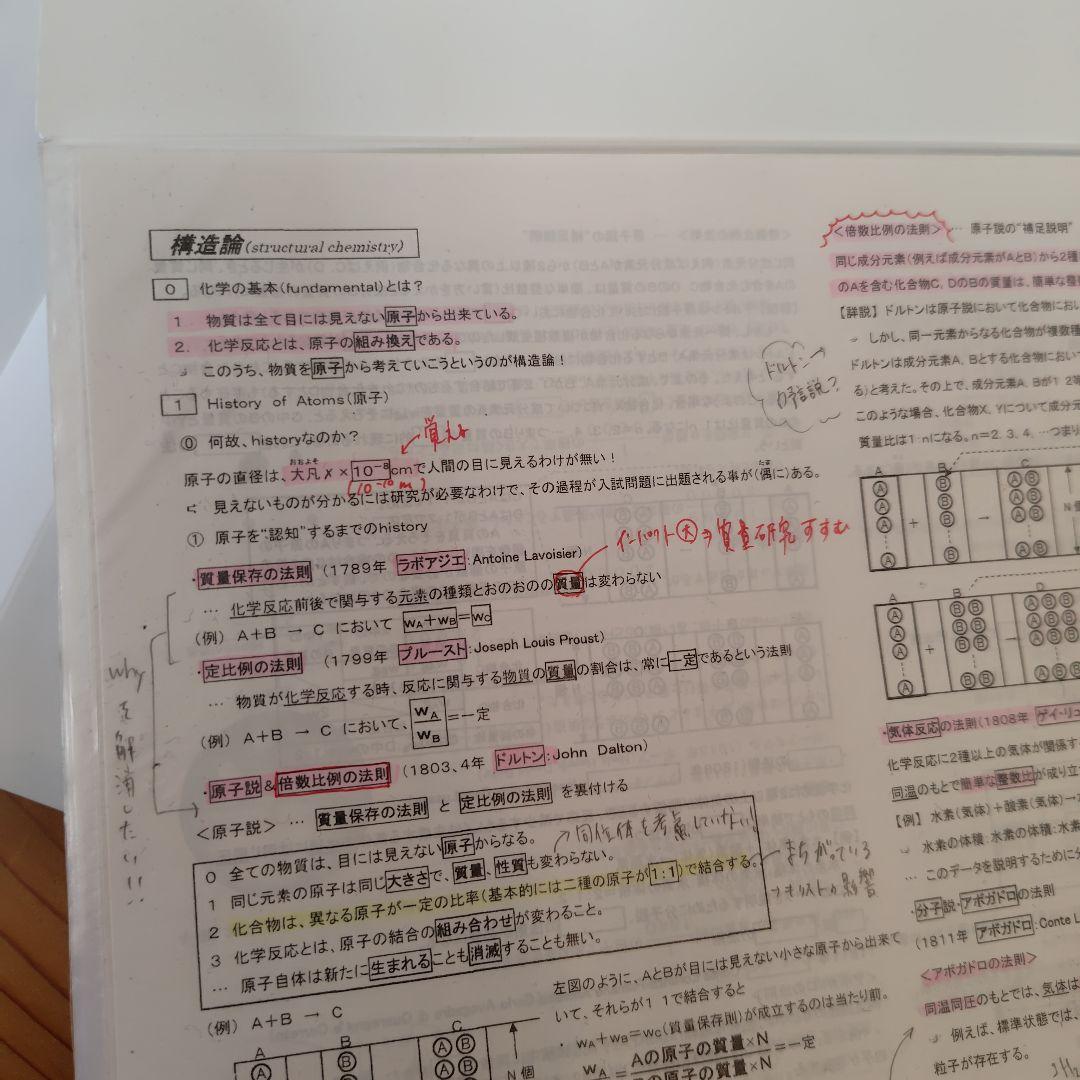 構造論(structural chemistry)
0 化学の基本(fundamental)とは?
1. 物質は全て目には見えない原子から出来ている。
2. 化学反応とは、原子の組み換えである。
このうち、物質を原子から考えていこうというのが構造論!
1 History of Atoms(原子)
⓪ 何故、historyなのか?
覚えよ
おおよそ
原子の直径は、大凡 × 10⁻⁸cmで人間の目に見えるわけが無い!
(10⁻¹⁰m)
見えないものが分かるには研究が必要なわけで、その過程が入試問題に出題される事が(偶に)ある。
たま
① 原子を“認知”するまでのhistory
インパクト大→質量研究すすむ
・質量保存の法則 (1789年 ラボアジエ:Antoine Lavoisier)
… 化学反応前後で関与する元素の種類とおのおのの質量は変わらない
(例) A+B → C において wA+wB=wC
・定比例の法則 (1799年 プルースト:Joseph Louis Proust)
… 物質が化学反応する時、反応に関与する物質の質量の割合は、常に一定であるという法則
(例) A+B → C において、wA/wB=一定
whyを解消したい!!
・原子説&倍数比例の法則 (1803、4年 ドルトン:John Dalton)
<原子説> … 質量保存の法則 と 定比例の法則 を裏付ける
0 全ての物質は、目には見えない原子からなる。
→同位体を考慮していない!
1 同じ元素の原子は同じ大きさで、質量、性質も変わらない。
2 化合物は、異なる原子が一定の比率(基本的には二種の原子が1:1)で結合する。
まちがっている
→キリストの影響
3 化学反応とは、原子の結合の組み合わせが変わること。
… 原子自体は新たに生まれることも消滅することも無い。
(例) A+B → C
A B C
A B A B
A B A B
N個
左図のように、AとBが目には見えない小さな原子から出来て
いて、それらが1 1で結合すると
・ wA+wB=wC(質量保存則)が成立するのは当たり前。
wA = Aの原子の質量×N =一定
の原子の質量×N
<倍数比例の法則> … 原子説の“補足説明”
同じ成分元素(例えば成分元素がAとB)から2種
のAを含む化合物C, DのBの質量は、簡単な整
【詳説】ドルトンは原子説において化合物におい
しかし、同一元素からなる化合物が複数種
ドルトン
ドルトンは成分元素A, Bとする化合物において
る)と考えた。その上で、成分元素A、Bが1 2等
このような場合、化合物X, Yについて成分元
質量比は1:nになる。n=2, 3, 4, …つまり
A B
A + B → A B
N個
A B D
A + B B → A B B
・気体反応の法則(1808年 ゲイ・リュ
化学反応に2種以上の気体が関係す
同温のもとで簡単な整数比が成り立
【例】 水素(気体)+酸素(気体)→
水素の体積:水素の体積:水
… このデータを説明するために分
・分子説・アボガドロの法則
(1811年 アボガドロ:Conte L
<アボガドロの法則>
同温同圧のもとでは、気体は
例えば、標準状態では、
粒子が存在する。